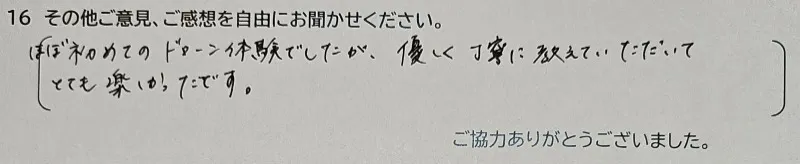 16 その他ご意見、ご感想を自由にお聞かせください。
ほぼ初めてのドローン体験でしたが、優しく丁寧に教えていただいて
とても楽しかったです。
ご協力ありがとうございました。